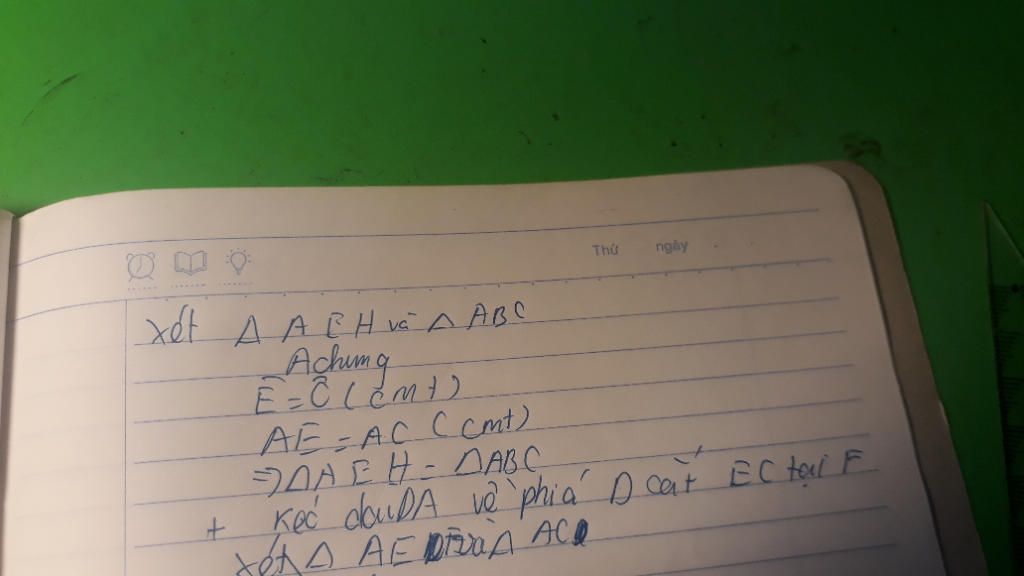 Thứ ngày
Xét Δ A E H và Δ ABC
A chung
Ê = Ĉ ( cmt)
AE = AC ( cmt)
=> Δ A E H = Δ ABC
+ Kéo DA về phiá D cắt EC tại F
xét Δ AE và Δ AC